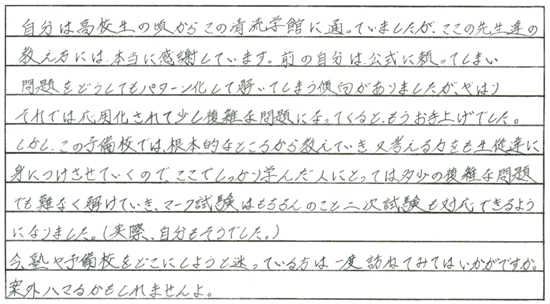 自分は高校生の頃からこの清流学館に通っていましたが、ここの先生達の
教え方には、本当に感謝しています。前の自分は、公式に頼ってしまい
問題をどうしてもパターン化して解いてしまう傾向がありましたが、やはり
それでは応用化されて少し複雑な問題になってくると、もうお手上げでした。
しかし、この予備校では、根本的なところから教えていき、又考える力をも生徒達に
身につけさせていくので、ここでしっかり学んだ人にとっては多少の複雑な問題
でも難なく解けていき、マーク試験はもちろんのこと二次試験も対応できるよう
になりました。(実際、自分もそうでした。)
今、塾や予備校をどこにしようと迷っている方は一度訪ねてみてはいかがですか。
案外ハマるかもしれませんよ。